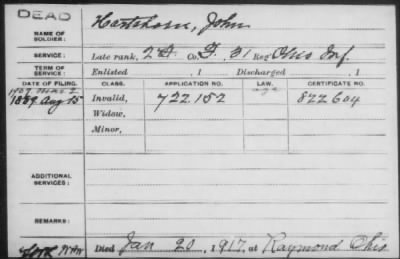 DEAD
NAME OF SOLDIER: Hartshorn, John
SERVICE: Late rank, Co. F. 31 Reg. Ohio Inf.
TERM OF SERVICE: Enlisted , 1 Discharged , 1
DATE OF FILING. CLASS. APPLICATION NO. LAW. CERTIFICATE NO.
1907 Mar 2
1889 Aug 15 Invalid, 722.152 age 822604
Widow,
Minor,
ADDITIONAL SERVICES:
REMARKS:
Died Jan 20, 1917, at Raymond Ohio